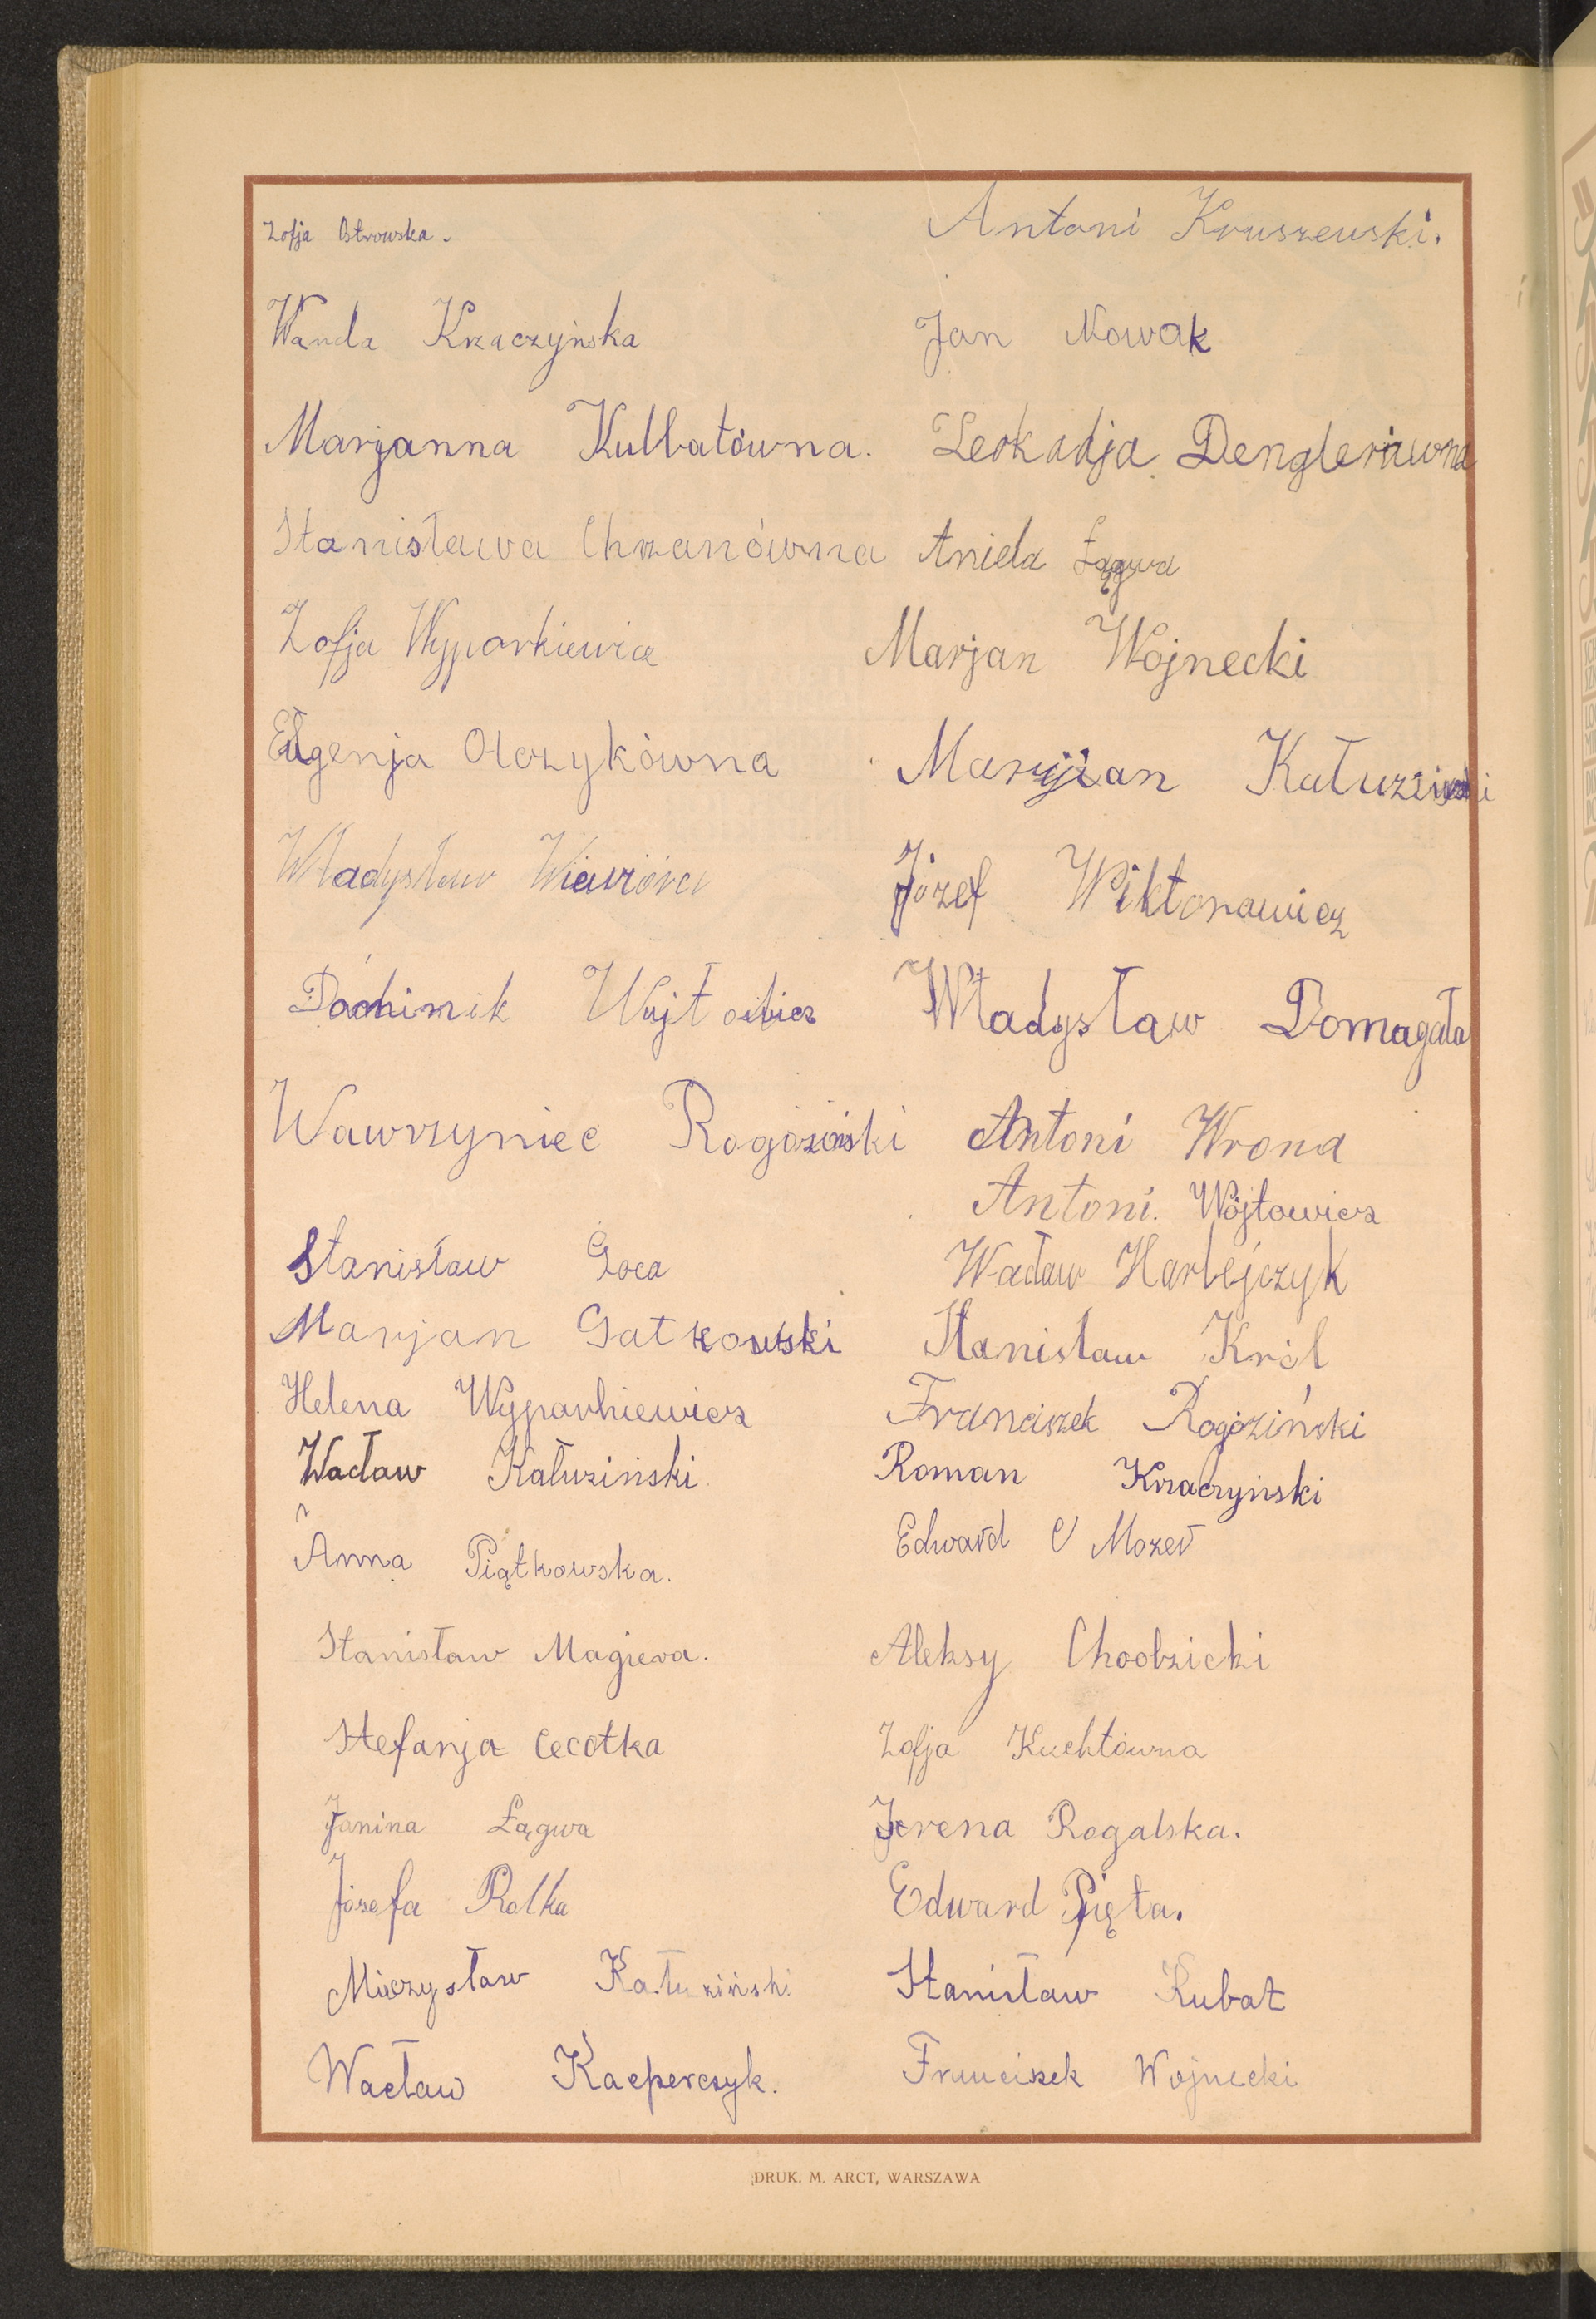 Zofja Ostrowska.
Wanda Krzaczyńska
Marjanna Kulbatówna.
Stanisława Chrzanówna
Zofja Wyparkiewicz
Eugenja Olczykówna
Władysław Wiewióra
Dominik Wujtowicz
Wawrzyniec Rogoziński
Stanisław Goca
Marjan Gatkowski
Helena Wyparkiewicz
Wacław Kałuziński
Anna Piątkowska.
Stanisław Magiera.
Stefanja Cecotka
Janina Łągwa
Józefa Rolka
Mieczysław Kałuziński
Wacław Kacperczyk.
Antoni Kruszewski.
Jan Nowak
Leokadja Denglerówna
Aniela Łągwa
Marjan Wojnecki
Marjan Kałuziński
Józef Wiktorowicz
Władysław Domagała
Antoni Wrona
Antoni. Wójtowicz
Wacław Harbejczyk
Stanisław Król
Franciszek Rogoziński
Roman Krzaczyński
Edward Mozer
Aleksy Chodzicki
Zofja Kuchtówna
Irena Rogalska.
Edward Pięta.
Stanisław Kubat
Franciszek Wojnecki
DRUK. M. ARCT, WARSZAWA